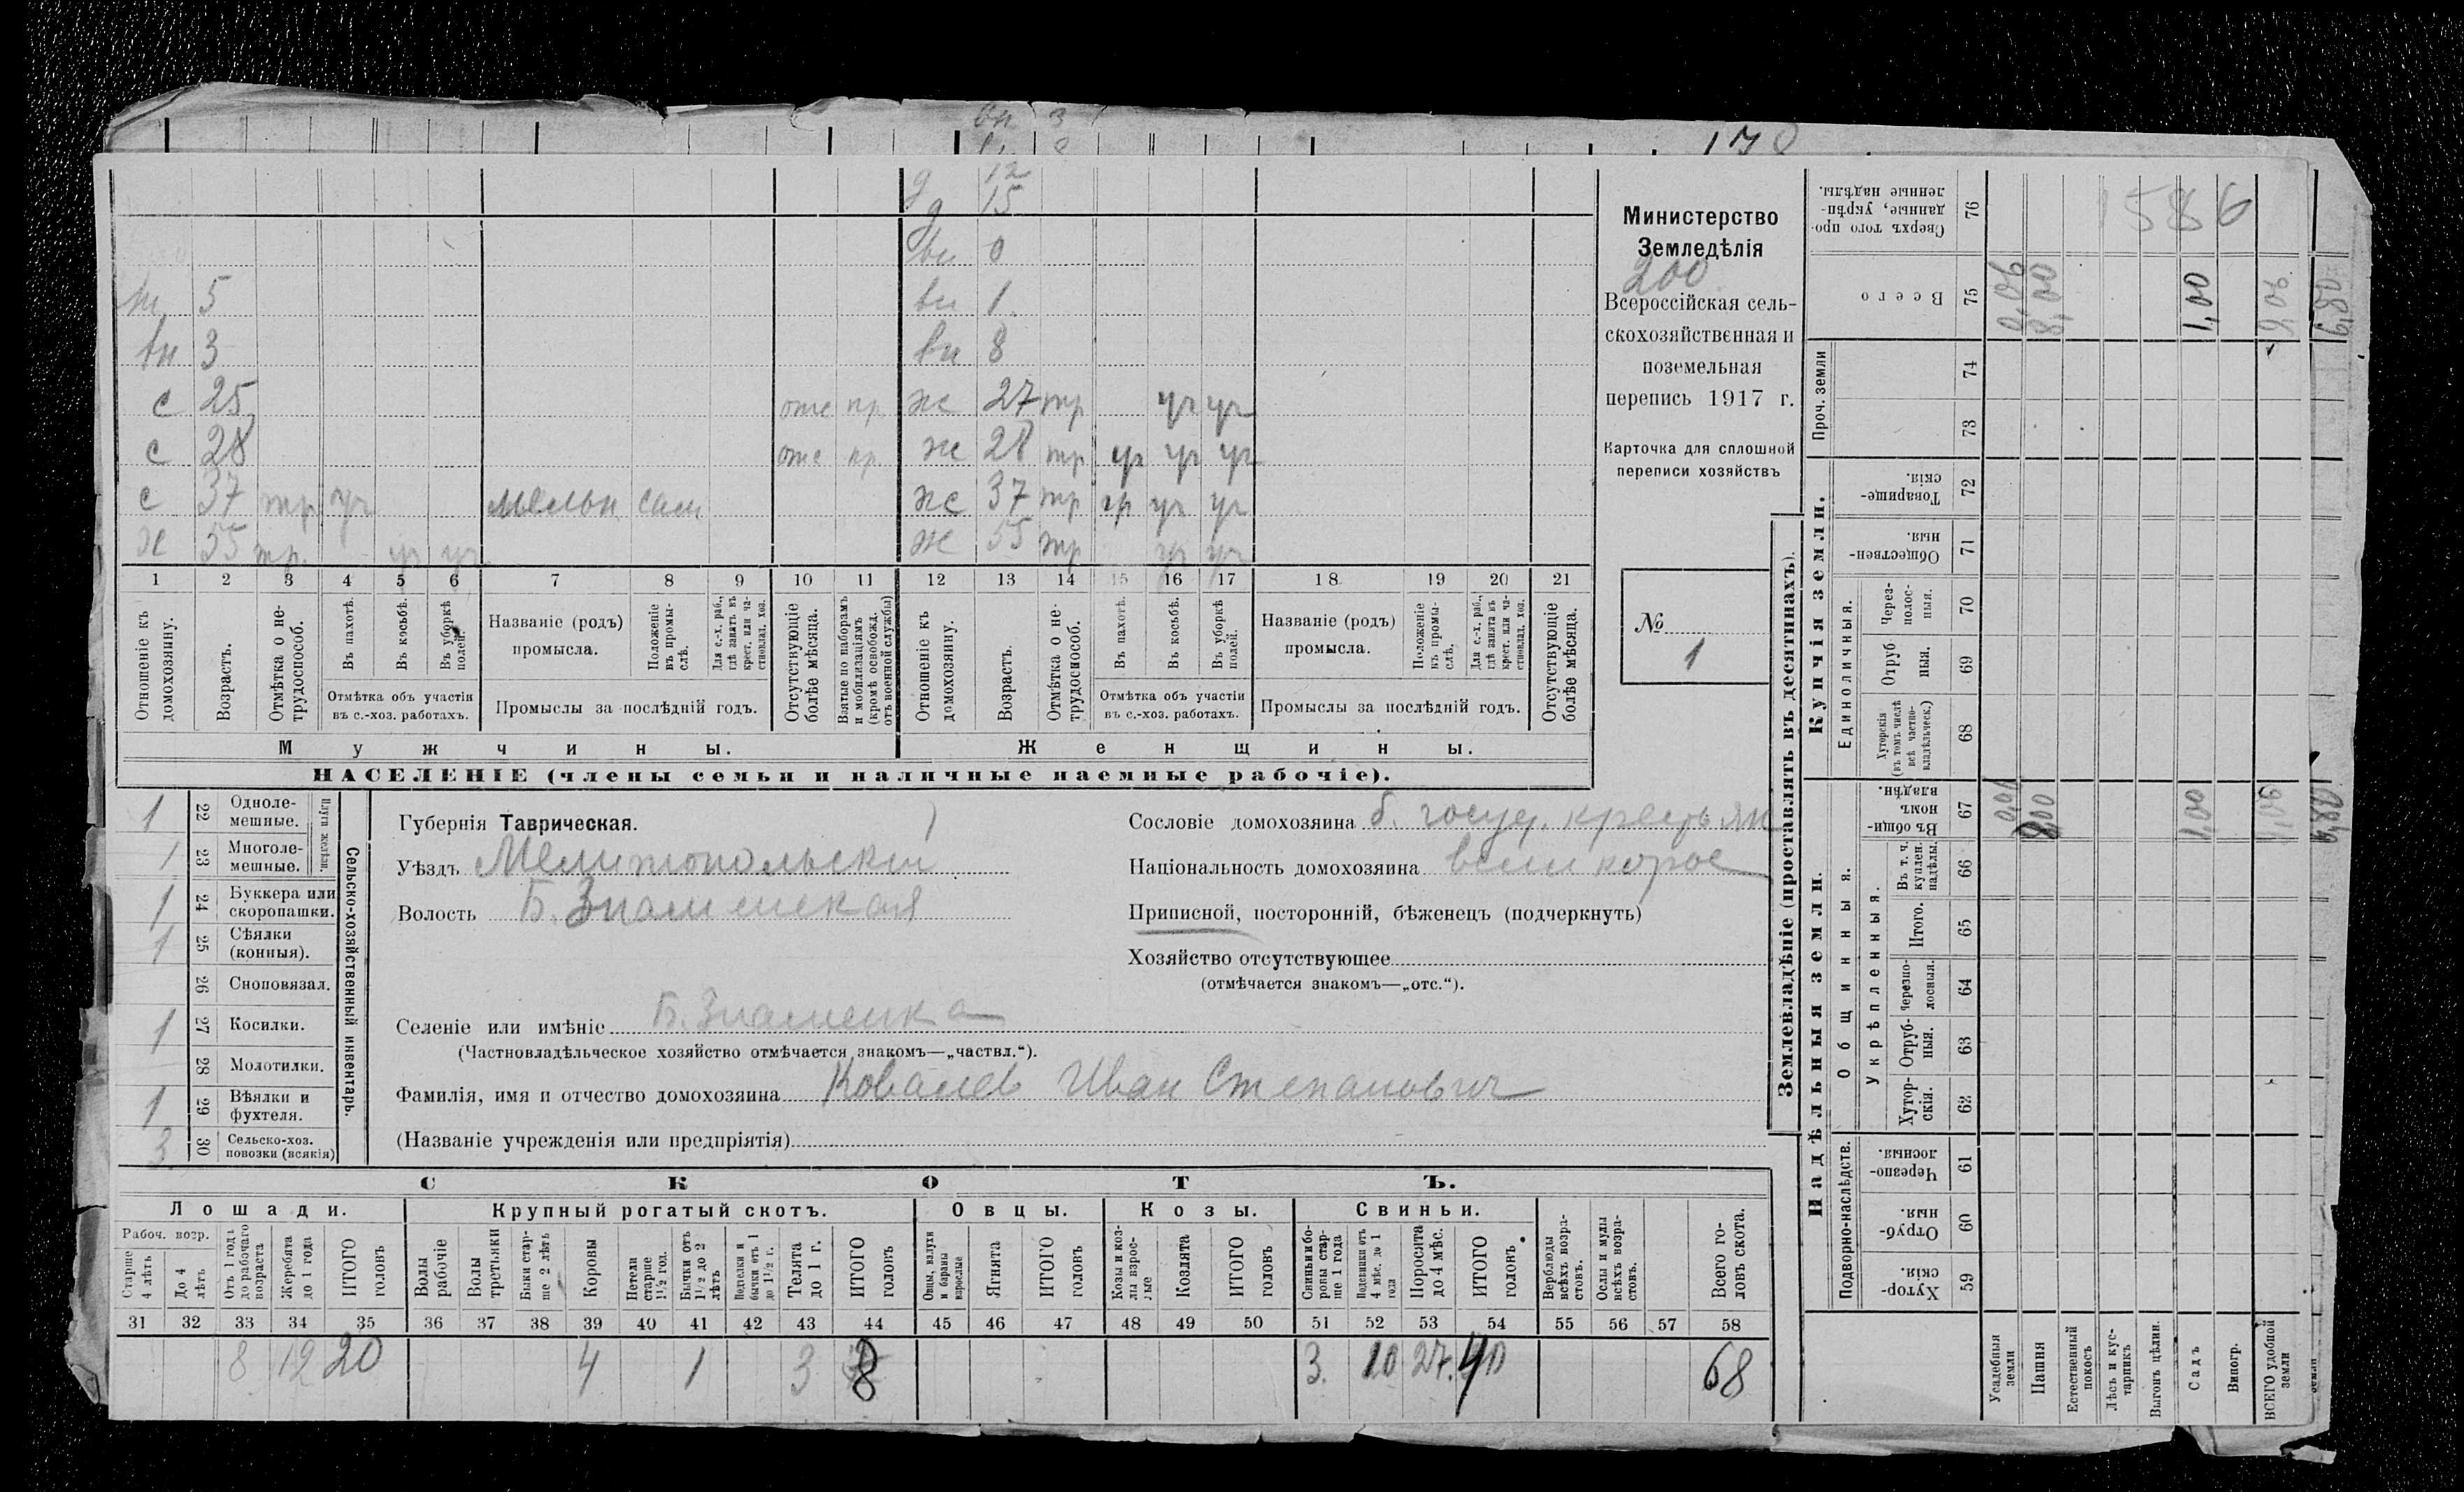 178
д 12
д 15
вн 0
м 5 вн 1
вн 3 вн 8
с 25 отс пр ж 27 тр уч уч
с 28 отс пр. ж 28 тр уч уч уч
с 37 тр уч мельн сам ж 37 тр уч уч уч
х 55 тр. уч уч ж 55 тр уч уч
1 2 3 4 5 6 7 8 9 10 11 12 13 14 15 16 17 18 19 20 21
Отношеніе къ домохозяину.
Возрастъ.
Отмѣтка о нетрудоспособ.
Въ пахотѣ.
Въ косьбѣ.
Въ уборкѣ полей.
Отмѣтка объ участіи
въ с.-хоз. работахъ.
Названіе (родъ)
промысла.
Положеніе въ промыслѣ.
Для с.-х. раб., гдѣ занятъ въ крест. или частновлад. хоз.
Промыслы за послѣдній годъ.
Отсутствующіе болѣе мѣсяца.
Взятые по наборамъ и мобилизаціямъ (кромѣ освобожд. отъ военной службы)
Отношеніе къ домохозяину.
Возрастъ.
Отмѣтка о нетрудоспособ.
Въ пахотѣ.
Въ косьбѣ.
Въ уборкѣ полей.
Отмѣтка объ участіи
въ с.-хоз. работахъ.
Названіе (родъ)
промысла.
Положеніе въ промыслѣ.
Для с.-х. раб., гдѣ занята въ крест. или частновлад. хоз.
Промыслы за послѣдній годъ.
Отсутствующіе болѣе мѣсяца.
Мужчины.
Женщины.
НАСЕЛЕНІЕ (члены семьи и наличные наемные рабочіе).
Министерство
Земледѣлія
200
Всероссійская сель-
скохозяйственная и
поземельная
перепись 1917 г.
Карточка для сплошной
переписи хозяйствъ
№
1
1 22 Одноле-
мешные.
1 23 Многоле-
мешные.
Плуги желѣзн.
1 24 Буккера или
скоропашки.
1 25 Сѣялки
(конныя).
26 Сноповязал.
1 27 Косилки.
28 Молотилки.
1 29 Вѣялки и
фухтеля.
3 30 Сельско-хоз.
повозки (всякія)
Сельско-хозяйственный инвентарь.
Губернія Таврическая.
Уѣздъ Мелитопольскій
Волость Б. Знаменская
Сословіе домохозяина б. госуд. крестьян
Національность домохозяина великорос
Приписной, посторонній, бѣженецъ (подчеркнуть)
Хозяйство отсутствующее
(отмѣчается знакомъ—„отс.“).
Селеніе или имѣніе Б. Знаменка
(Частновладѣльческое хозяйство отмѣчается знакомъ—„частвл.“).
Фамилія, имя и отчество домохозяина Ковалев Иван Степанович
(Названіе учрежденія или предпріятія)
СКОТЪ.
Лошади.
Крупный рогатый скотъ.
Овцы.
Козы.
Свиньи.
Рабоч. возр.
Старше 4 лѣтъ
До 4 лѣтъ
Отъ 1 года до рабочаго возраста
Жеребята до 1 года
ИТОГО головъ
Волы рабочіе
Волы третьяки
Быки старше 2 лѣтъ
Коровы
Нетели старше 1½ год.
Бычки отъ 1½ до 2 лѣтъ
Подтелки и бычки отъ 1 до 1½ г.
Телята до 1 г.
ИТОГО головъ
Овцы, валухи и бараны взрослые
Ягнята
ИТОГО головъ
Козы и козлы взрослые
Козлята
ИТОГО головъ
Свиньи и боровы старше 1 года
Подсвинки отъ 4 мѣс. до 1 года
Поросята до 4 мѣс.
ИТОГО головъ.
Верблюды всѣхъ возрастовъ.
Ослы и мулы всѣхъ возрастовъ.
Всего головъ скота.
31 32 33 34 35 36 37 38 39 40 41 42 43 44 45 46 47 48 49 50 51 52 53 54 55 56 57 58
8 12 20 4 1 3 8 3. 10 27. 40 68
Землевладѣніе (проставлять въ десятинахъ).
Надѣльныя земли.
Купчія земли.
Проч. земли
Подворно-наслѣдств.
Общинныя.
Укрѣпленныя.
Единоличныя.
Хутор-
скія. 59
Отруб-
ныя. 60
Черезпо-
лосныя. 61
Хутор-
скія. 62
Отруб-
ныя. 63
Черезпо-
лосныя. 64
Итого. 65
Въ т. ч. куплен. надѣлы. 66
Въ общи-
номъ
владѣн. 67
Хуторскія (въ томъ числѣ всѣ частно-владѣльческ.) 68
Отруб
ныя. 69
Через-
полос-
ныя. 70
Обществен-
ныя. 71
Товарище-
скія. 72
73
74
Всего 75
Сверхъ того про-
данные, укрѣп-
ленные надѣлы. 76
1586
Усадебныя земли
Пашня
Естественный покосъ
Лѣсъ и кустарникъ
Выгонъ цѣлин.
Садъ
Виногр.
ВСЕГО удобной земли
0,06 8,00 1,00 9,06 6,80
8,00 1,00 9,06 6,80